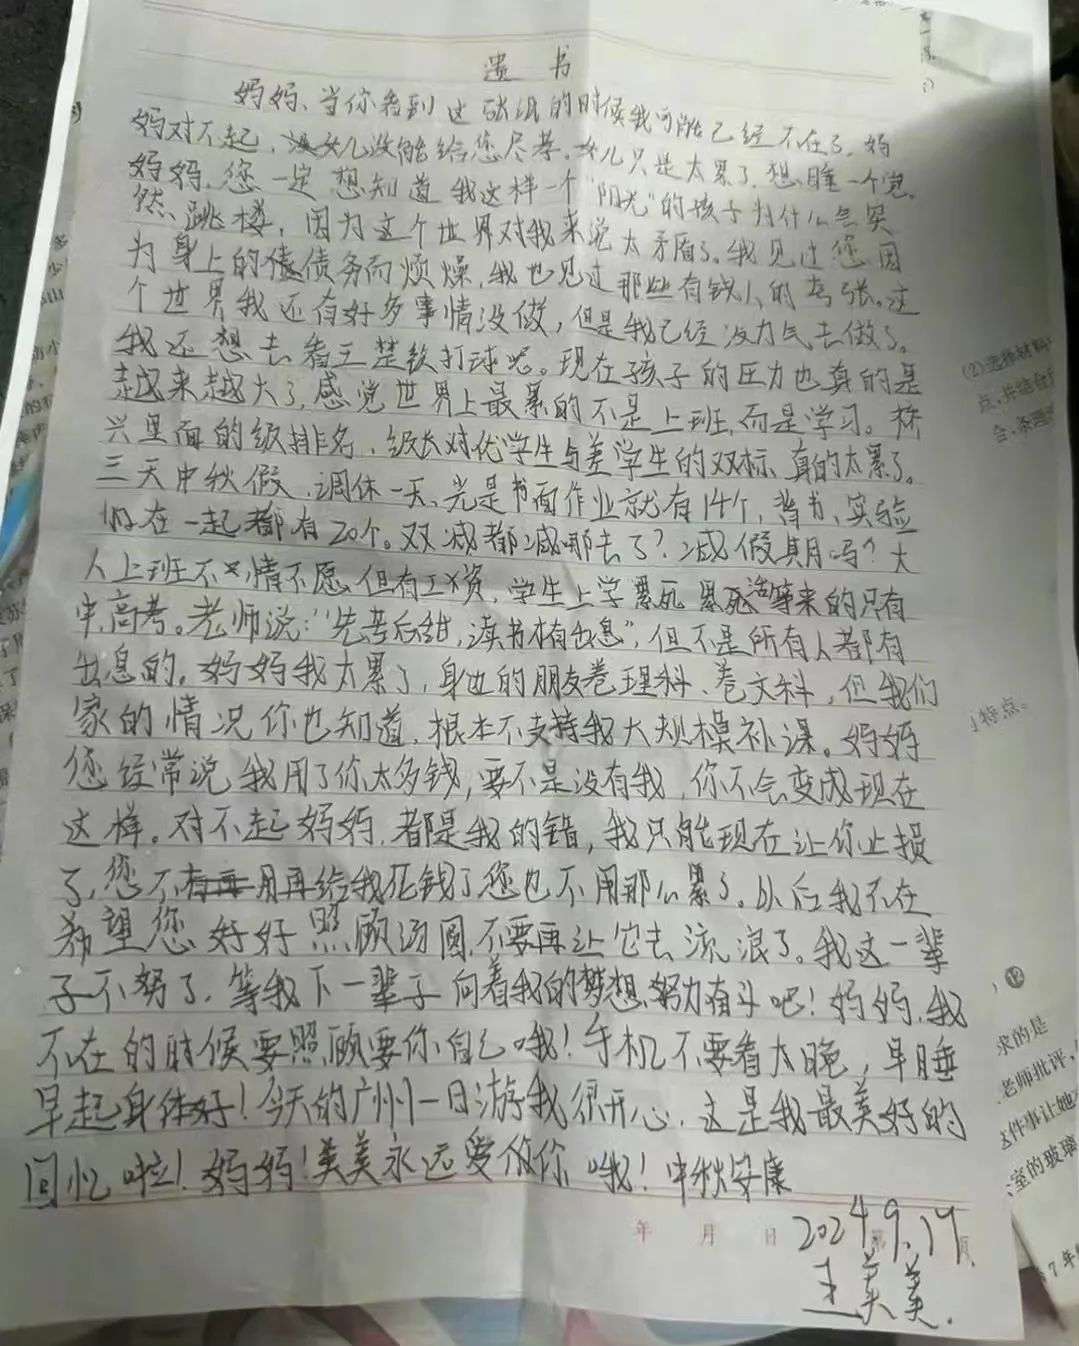 遗书
妈妈、当你看到这张纸的时候我可能已经不在了，妈
妈对不起，女儿没能给您尽孝，女儿只是太累了，想睡一个觉，
妈妈，您一定想知道我这样一个"阳光"的孩子为什么会突
然跳楼，因为这个世界对我来说太矛盾了。我见过您因
为身上的债务而烦燥，我也见过那些有钱人的嚣张。这
个世界我还有好多事情没做，但是我已经没力气去做了。
我还想去看王楚钦打球呢。现在孩子的压力也真的是
越来越大了，感觉世界上最累的不是上班，而是学习。
兴里面的级排名，级长对优学生与差学生的双标、真的太累了。
三天中秋假，调休一天，光是书面作业就有14个，背书、实验
加在一起都有20个。双减都减哪去了？减假期吗？大
人上班不情不愿，但有工资，学生上学累死累死等来的只有
中，高考。老师说："先苦后甜，读书才有出息"，但不是所有人都有
出息的。妈妈我太累了，身边的朋友卷理科、卷文科，但我们
家的情况你也知道，根本不支持我大规模补课。妈妈
您经常说我用了你太多钱，要不是没有我，你不会变成现在
这样。对不起妈妈，都是我的错，我只能现在让你止损
了，您不用再给我花钱了您也不用那么累了。以后我不在
希望您好好照顾汤圆，不要再让它去流浪了。我这一辈
子不努了，等我下一辈子向着我的梦想努力奋斗吧！妈妈，我
不在的时候要照顾要你自己哦！手机不要看太晚，早睡
早起身体好！今天的广州一日游我很开心，这是我最美好的
回忆啦！妈妈！美美永远爱你哦！中秋安康
年 月 日 2024 9.17
王美美.
(2)选择材料
特点。
求的是
老师批评，
这件事让她
室的玻璃